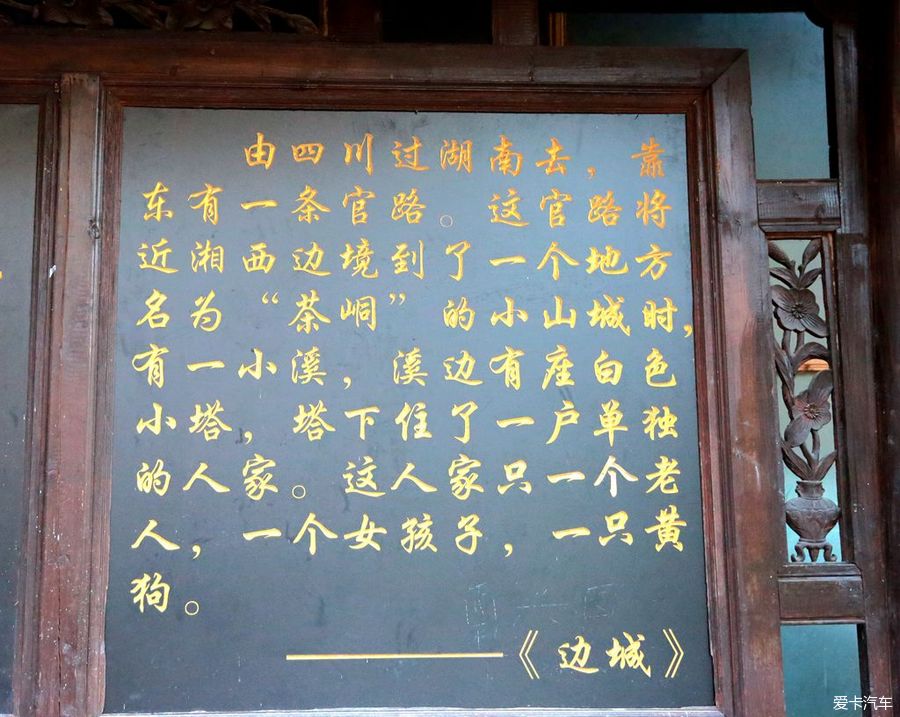 由四川过湖南去，靠
东有一条官路。这官路将
近湘西边境到了一个地方
名为“茶峒”的小山城时，
有一小溪，溪边有座白色
小塔，塔下住了一户单独
的人家。这人家只一个老
人，一个女孩子，一只黄
狗。
——《边城》
爱卡汽车